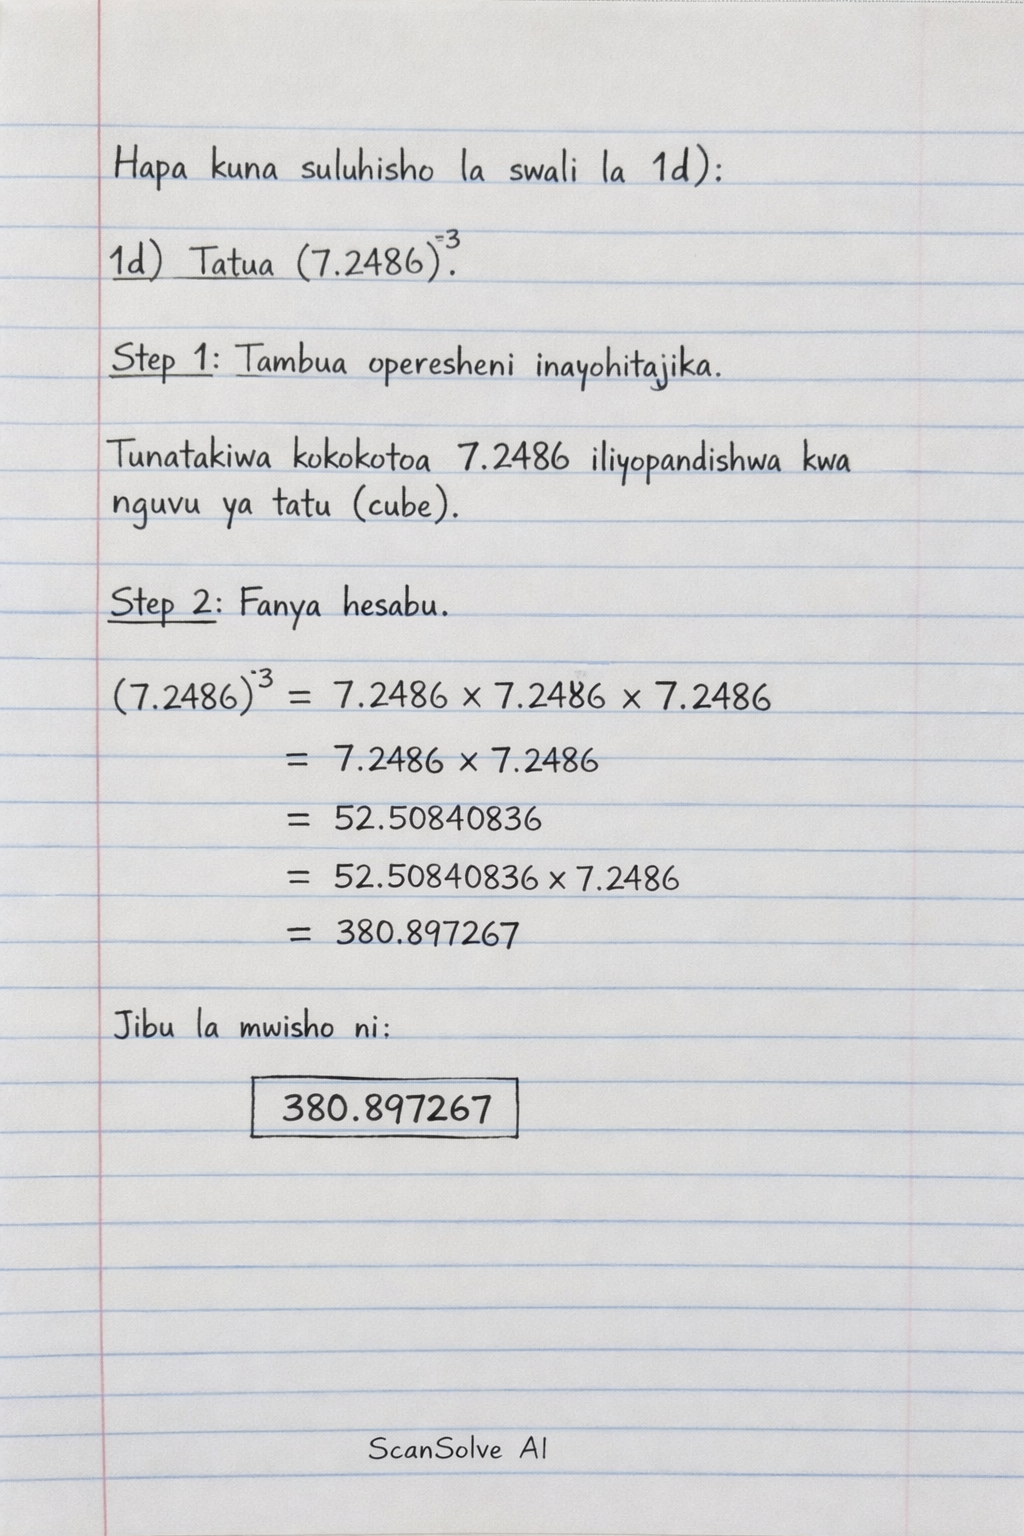 Hapa kuna suluhisho la swali la 1d):
1d) Tatua (7.2486)⁻³.
Step 1: Tambua operesheni inayohitajika.
Tunatakiwa kokokotoa 7.2486 iliyopandishwa kwa
nguvu ya tatu (cube).
Step 2: Fanya hesabu.
(7.2486)⁻³ = 7.2486 × 7.2486 × 7.2486
= 7.2486 × 7.2486
= 52.50840836
= 52.50840836 × 7.2486
= 380.897267
Jibu la mwisho ni:
380.897267
ScanSolve AI